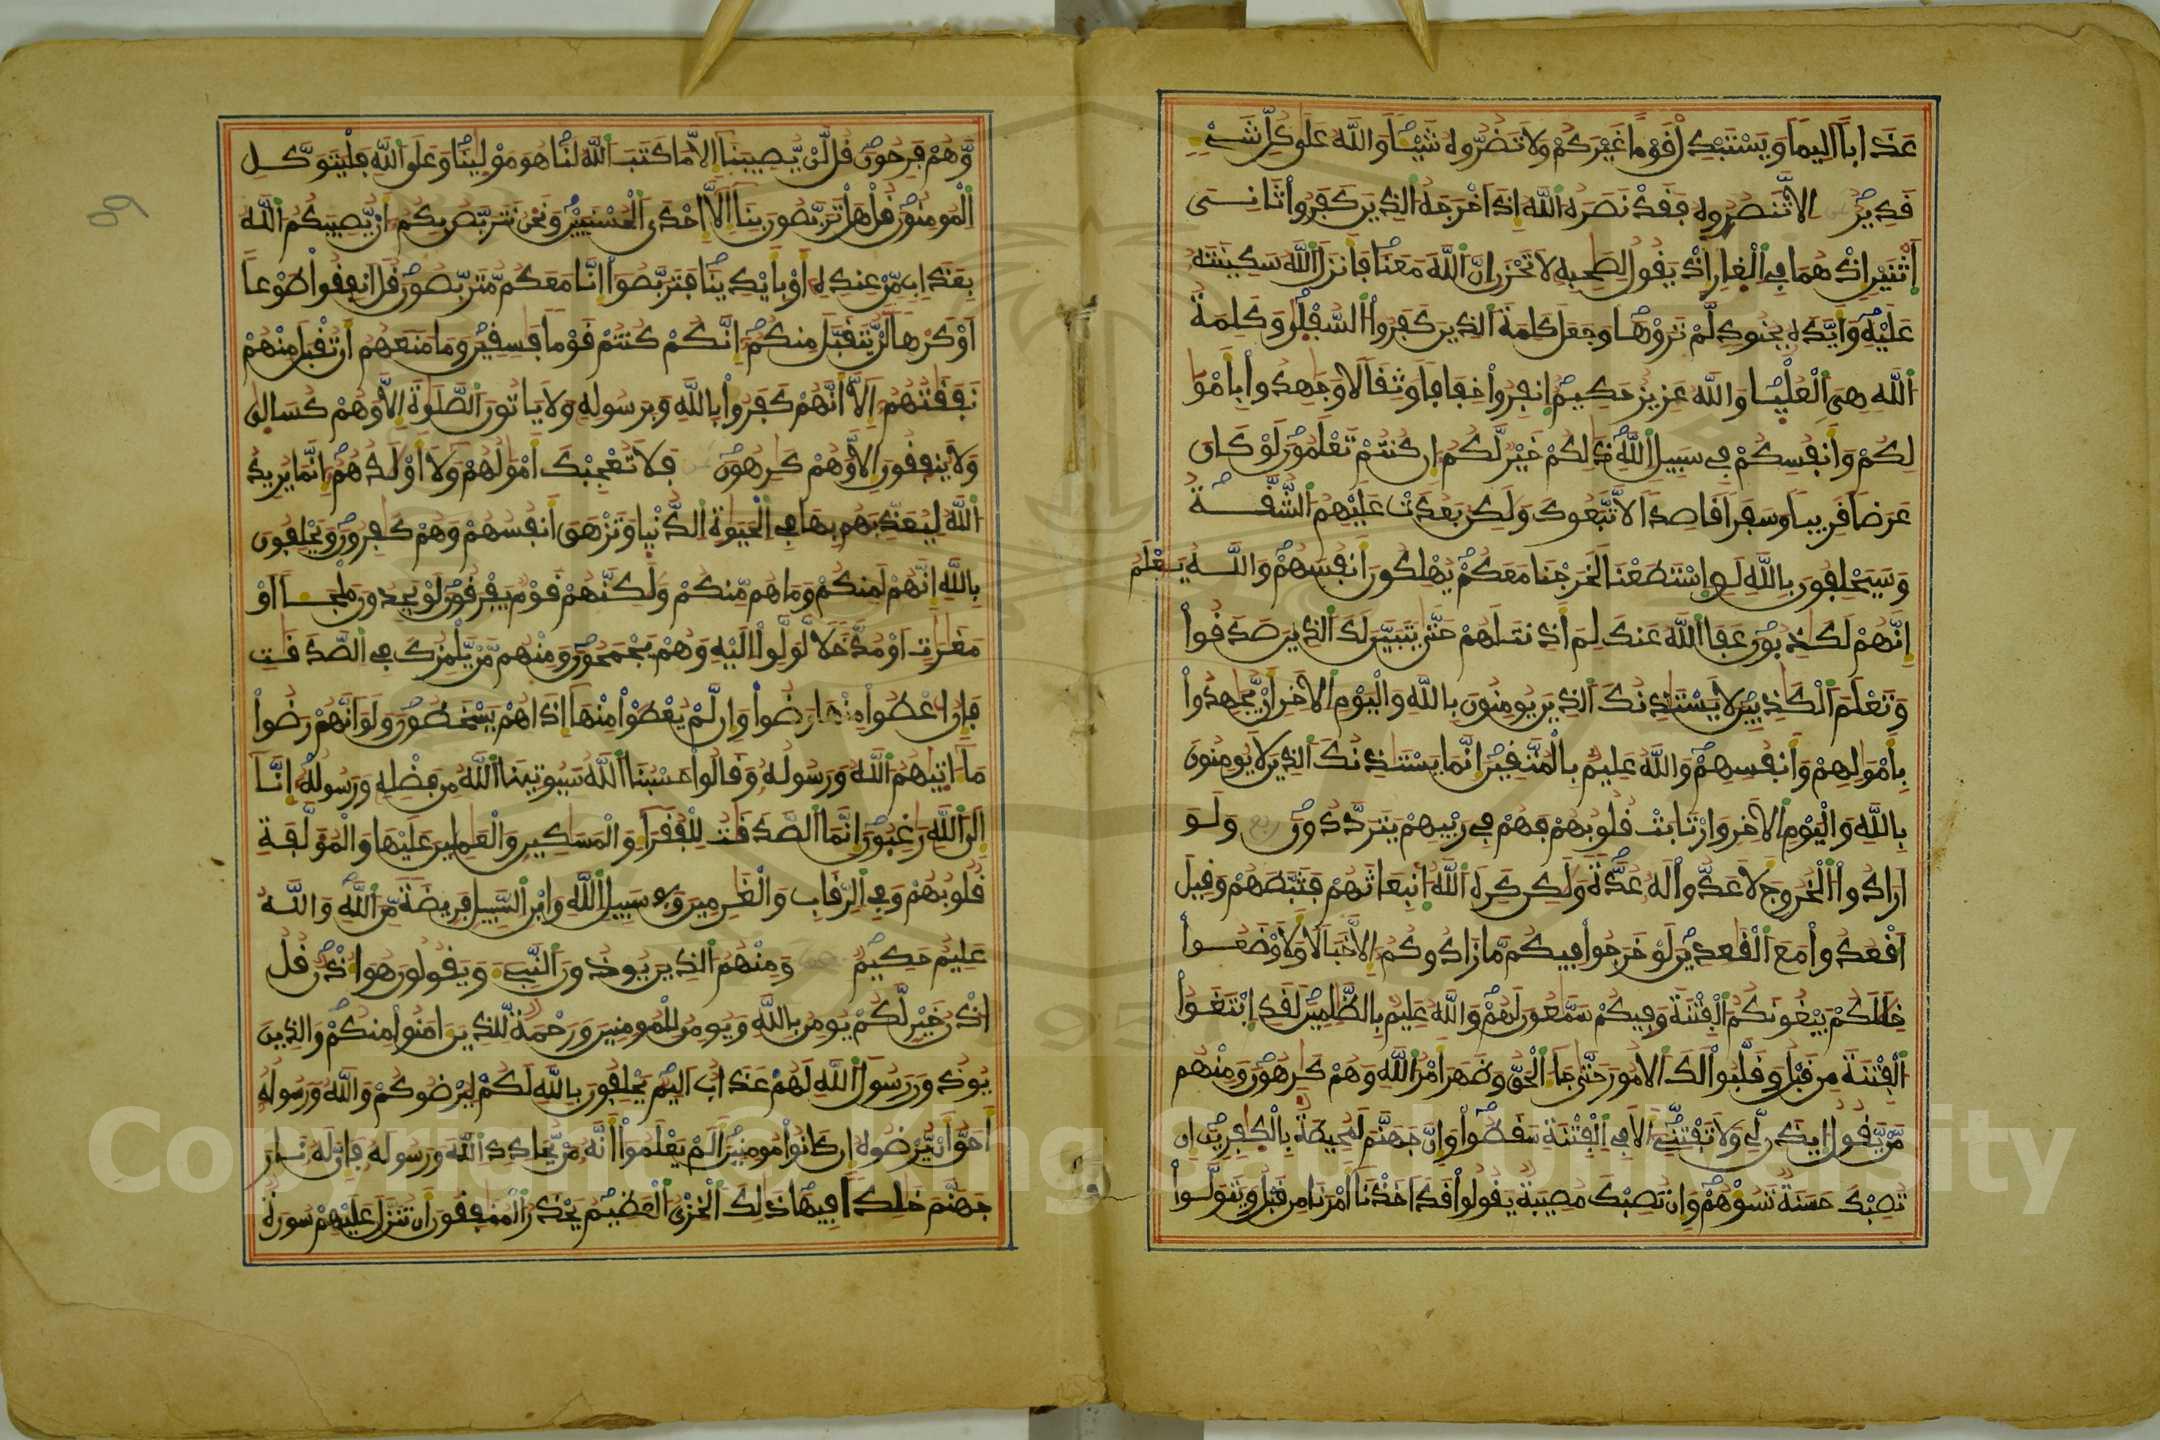 عَذَابًا اَلِيمًا وَيَسْتَبْدِلْ قَوْمًا غَيْرَكُمْ وَلَا تَضُرُّوهُ شَيْـًٔا وَاللَّهُ عَلَىٰ كُلِّ شَيْءٍ
قَدِيرٌ اِلَّا تَنصُرُوهُ فَقَدْ نَصَرَهُ اللَّهُ إِذَ اَخْرَجَهُ الذِينَ كَفَرُوا ثَانِيَ
اَثْنَيْنِ إِذْ هُمَا فِي الْغَارِ إِذْ يَقُولُ لِصَٰحِبِهِ لَا تَحْزَنِ انَّ اللَّهَ مَعَنَا فَأَنزَلَ اللَّهُ سَكِينَتَهُ
عَلَيْهِ وَأَيَّدَهُ بِجُنُودٍ لَّمْ تَرَوْهَا وَجَعَلَ كَلِمَةَ الذِينَ كَفَرُوا السُّفْلَىٰ وَكَلِمَةُ
اللَّهِ هِيَ الْعُلْيَا وَاللَّهُ عَزِيزٌ حَكِيمٌ اِنفِرُوا خِفَافًا وَثِقَالًا وَجَٰهِدُوا بِأَمْوَٰ
لِكُمْ وَأَنفُسِكُمْ فِي سَبِيلِ اللَّهِ ذَٰلِكُمْ خَيْرٌ لَّكُمْ إِن كُنتُمْ تَعْلَمُونَ لَوْ كَانَ
عَرَضًا قَرِيبًا وَسَفَرًا قَاصِدًا لَّاتَّبَعُوكَ وَلَٰكِن بَعُدَتْ عَلَيْهِمُ الشُّقَّةُ
وَسَيَحْلِفُونَ بِاللَّهِ لَوِ اِسْتَطَعْنَا لَخَرَجْنَا مَعَكُمْ يُهْلِكُونَ أَنفُسَهُمْ وَاللَّهُ يَعْلَمُ
إِنَّهُمْ لَكَٰذِبُونَ عَفَا اللَّهُ عَنكَ لِمَ أَذِنتَ لَهُمْ حَتَّىٰ يَتَبَيَّنَ لَكَ الذِينَ صَدَقُوا
وَتَعْلَمَ الْكَٰذِبِينَ لَا يَسْتَٰذِنُكَ الذِينَ يُومِنُونَ بِاللَّهِ وَالْيَوْمِ الَاخِرِ أَنْ يُّجَٰهِدُوا
بِأَمْوَٰلِهِمْ وَأَنفُسِهِمْ وَاللَّهُ عَلِيمٌ بِالْمُتَّقِينَ إِنَّمَا يَسْتَٰذِنُكَ الذِينَ لَا يُومِنُونَ
بِاللَّهِ وَالْيَوْمِ الَاخِرِ وَارْتَابَتْ قُلُوبُهُمْ فَهُمْ فِي رَيْبِهِمْ يَتَرَدَّدُونَ وَلَوَ
اَرَادُوا الْخُرُوجَ لَأَعَدُّوا لَهُ عُدَّةً وَلَٰكِن كَرِهَ اللَّهُ انۢبِعَاثَهُمْ فَثَبَّطَهُمْ وَقِيلَ
اَقْعُدُوا مَعَ الْقَٰعِدِينَ لَوْ خَرَجُوا فِيكُم مَّا زَادُوكُمُ إِلَّا خَبَالًا وَلَأَوْضَعُوا
خِلَٰلَكُمْ يَبْغُونَكُمُ الْفِتْنَةَ وَفِيكُمْ سَمَّٰعُونَ لَهُمْ وَاللَّهُ عَلِيمٌ بِالظَّٰلِمِينَ لَقَدِ ابْتَغَوُا
الْفِتْنَةَ مِن قَبْلُ وَقَلَّبُوا لَكَ الُامُورَ حَتَّىٰ جَاءَ الْحَقُّ وَظَهَرَ أَمْرُ اللَّهِ وَهُمْ كَٰرِهُونَ وَمِنْهُم
مَّنْ يَّقُولُ ايذَن لِّي وَلَا تَفْتِنِّي أَلَا فِي الْفِتْنَةِ سَقَطُوا وَإِنَّ جَهَنَّمَ لَمُحِيطَةٌ بِالْكَٰفِرِينَ إِن
تُصِبْكَ حَسَنَةٌ تَسُؤْهُمْ وَإِن تُصِبْكَ مُصِيبَةٌ يَقُولُوا قَدَ اَخَذْنَا أَمْرَنَا مِن قَبْلُ وَيَتَوَلَّوا
وَّهُمْ فَرِحُونَ قُل لَّنْ يُّصِيبَنَا إِلَّا مَا كَتَبَ اللَّهُ لَنَا هُوَ مَوْلَىٰنَا وَعَلَى اللَّهِ فَلْيَتَوَكَّلِ
الْمُومِنُونَ قُلْ هَلْ تَرَبَّصُونَ بِنَا إِلَّا إِحْدَى الْحُسْنَيَيْنِ وَنَحْنُ نَتَرَبَّصُ بِكُمُ أَنْ يُّصِيبَكُمُ اللَّهُ
بِعَذَابٍ مِّنْ عِندِهِ أَوْ بِأَيْدِينَا فَتَرَبَّصُوا إِنَّا مَعَكُم مُّتَرَبِّصُونَ قُلَ اَنفِقُوا طَوْعًا
اَوْ كَرْهًا لَّنْ يُّتَقَبَّلَ مِنكُمُ إِنَّكُمْ كُنتُمْ قَوْمًا فَٰسِقِينَ وَمَا مَنَعَهُمُ أَن تُقْبَلَ مِنْهُمْ
نَفَقَٰتُهُمُ إِلَّا أَنَّهُمْ كَفَرُوا بِاللَّهِ وَبِرَسُولِهِ وَلَا يَاتُونَ الصَّلَوٰةَ إِلَّا وَهُمْ كُسَالَىٰ
وَلَا يُنفِقُونَ إِلَّا وَهُمْ كَٰرِهُونَ فَلَا تُعْجِبْكَ أَمْوَٰلُهُمْ وَلَا أَوْلَٰدُهُمُ إِنَّمَا يُرِيدُ
اللَّهُ لِيُعَذِّبَهُم بِهَا فِي الْحَيَوٰةِ الدُّنْيَا وَتَزْهَقَ أَنفُسُهُمْ وَهُمْ كَٰفِرُونَ وَيَحْلِفُونَ
بِاللَّهِ إِنَّهُمْ لَمِنكُمْ وَمَا هُم مِّنكُمْ وَلَٰكِنَّهُمْ قَوْمٌ يَفْرَقُونَ لَوْ يَجِدُونَ مَلْجَـًٔا اَوْ
مَغَٰرَٰتٍ اَوْ مُدَّخَلًا لَّوَلَّوِا اِلَيْهِ وَهُمْ يَجْمَحُونَ وَمِنْهُم مَّنْ يَّلْمِزُكَ فِي الصَّدَقَٰتِ
فَإِنُ اعْطُوا مِنْهَا رَضُوا وَإِن لَّمْ يُعْطَوْا مِنْهَا إِذَا هُمْ يَسْخَطُونَ وَلَوَ اَنَّهُمْ رَضُوا
مَا ءَاتَىٰهُمُ اللَّهُ وَرَسُولُهُ وَقَالُوا حَسْبُنَا اللَّهُ سَيُوتِينَا اللَّهُ مِن فَضْلِهِ وَرَسُولُهُ إِنَّا
إِلَى اللَّهِ رَٰغِبُونَ إِنَّمَا الصَّدَقَٰتُ لِلْفُقَرَاءِ وَالْمَسَٰكِينِ وَالْعَٰمِلِينَ عَلَيْهَا وَالْمُؤَلَّفَةِ
قُلُوبُهُمْ وَفِي الرِّقَابِ وَالْغَٰرِمِينَ وَفِي سَبِيلِ اللَّهِ وَابْنِ السَّبِيلِ فَرِيضَةً مِّنَ اللَّهِ وَاللَّهُ
عَلِيمٌ حَكِيمٌ وَمِنْهُمُ الذِينَ يُوذُونَ النَّبِيءَ وَيَقُولُونَ هُوَ أُذْنٌ قُلُ
اُذْنُ خَيْرٍ لَّكُمْ يُومِنُ بِاللَّهِ وَيُومِنُ لِلْمُومِنِينَ وَرَحْمَةٌ لِّلذِينَ ءَامَنُوا مِنكُمْ وَالذِينَ
يُوذُونَ رَسُولَ اللَّهِ لَهُمْ عَذَابٌ اَلِيمٌ يَحْلِفُونَ بِاللَّهِ لَكُمْ لِيُرْضُوكُمْ وَاللَّهُ وَرَسُولُهُ
أَحَقُّ أَنْ يُّرْضُوهُ إِن كَانُوا مُومِنِينَ أَلَمْ يَعْلَمُوا أَنَّهُ مَنْ يُّحَادِدِ اللَّهَ وَرَسُولَهُ فَأَنَّ لَهُ نَارَ
جَهَنَّمَ خَٰلِدًا فِيهَا ذَٰلِكَ الْخِزْيُ الْعَظِيمُ يَحْذَرُ الْمُنَٰفِقُونَ أَن تُنَزَّلَ عَلَيْهِمْ سُورَةٌ
Copyright © King Saud University